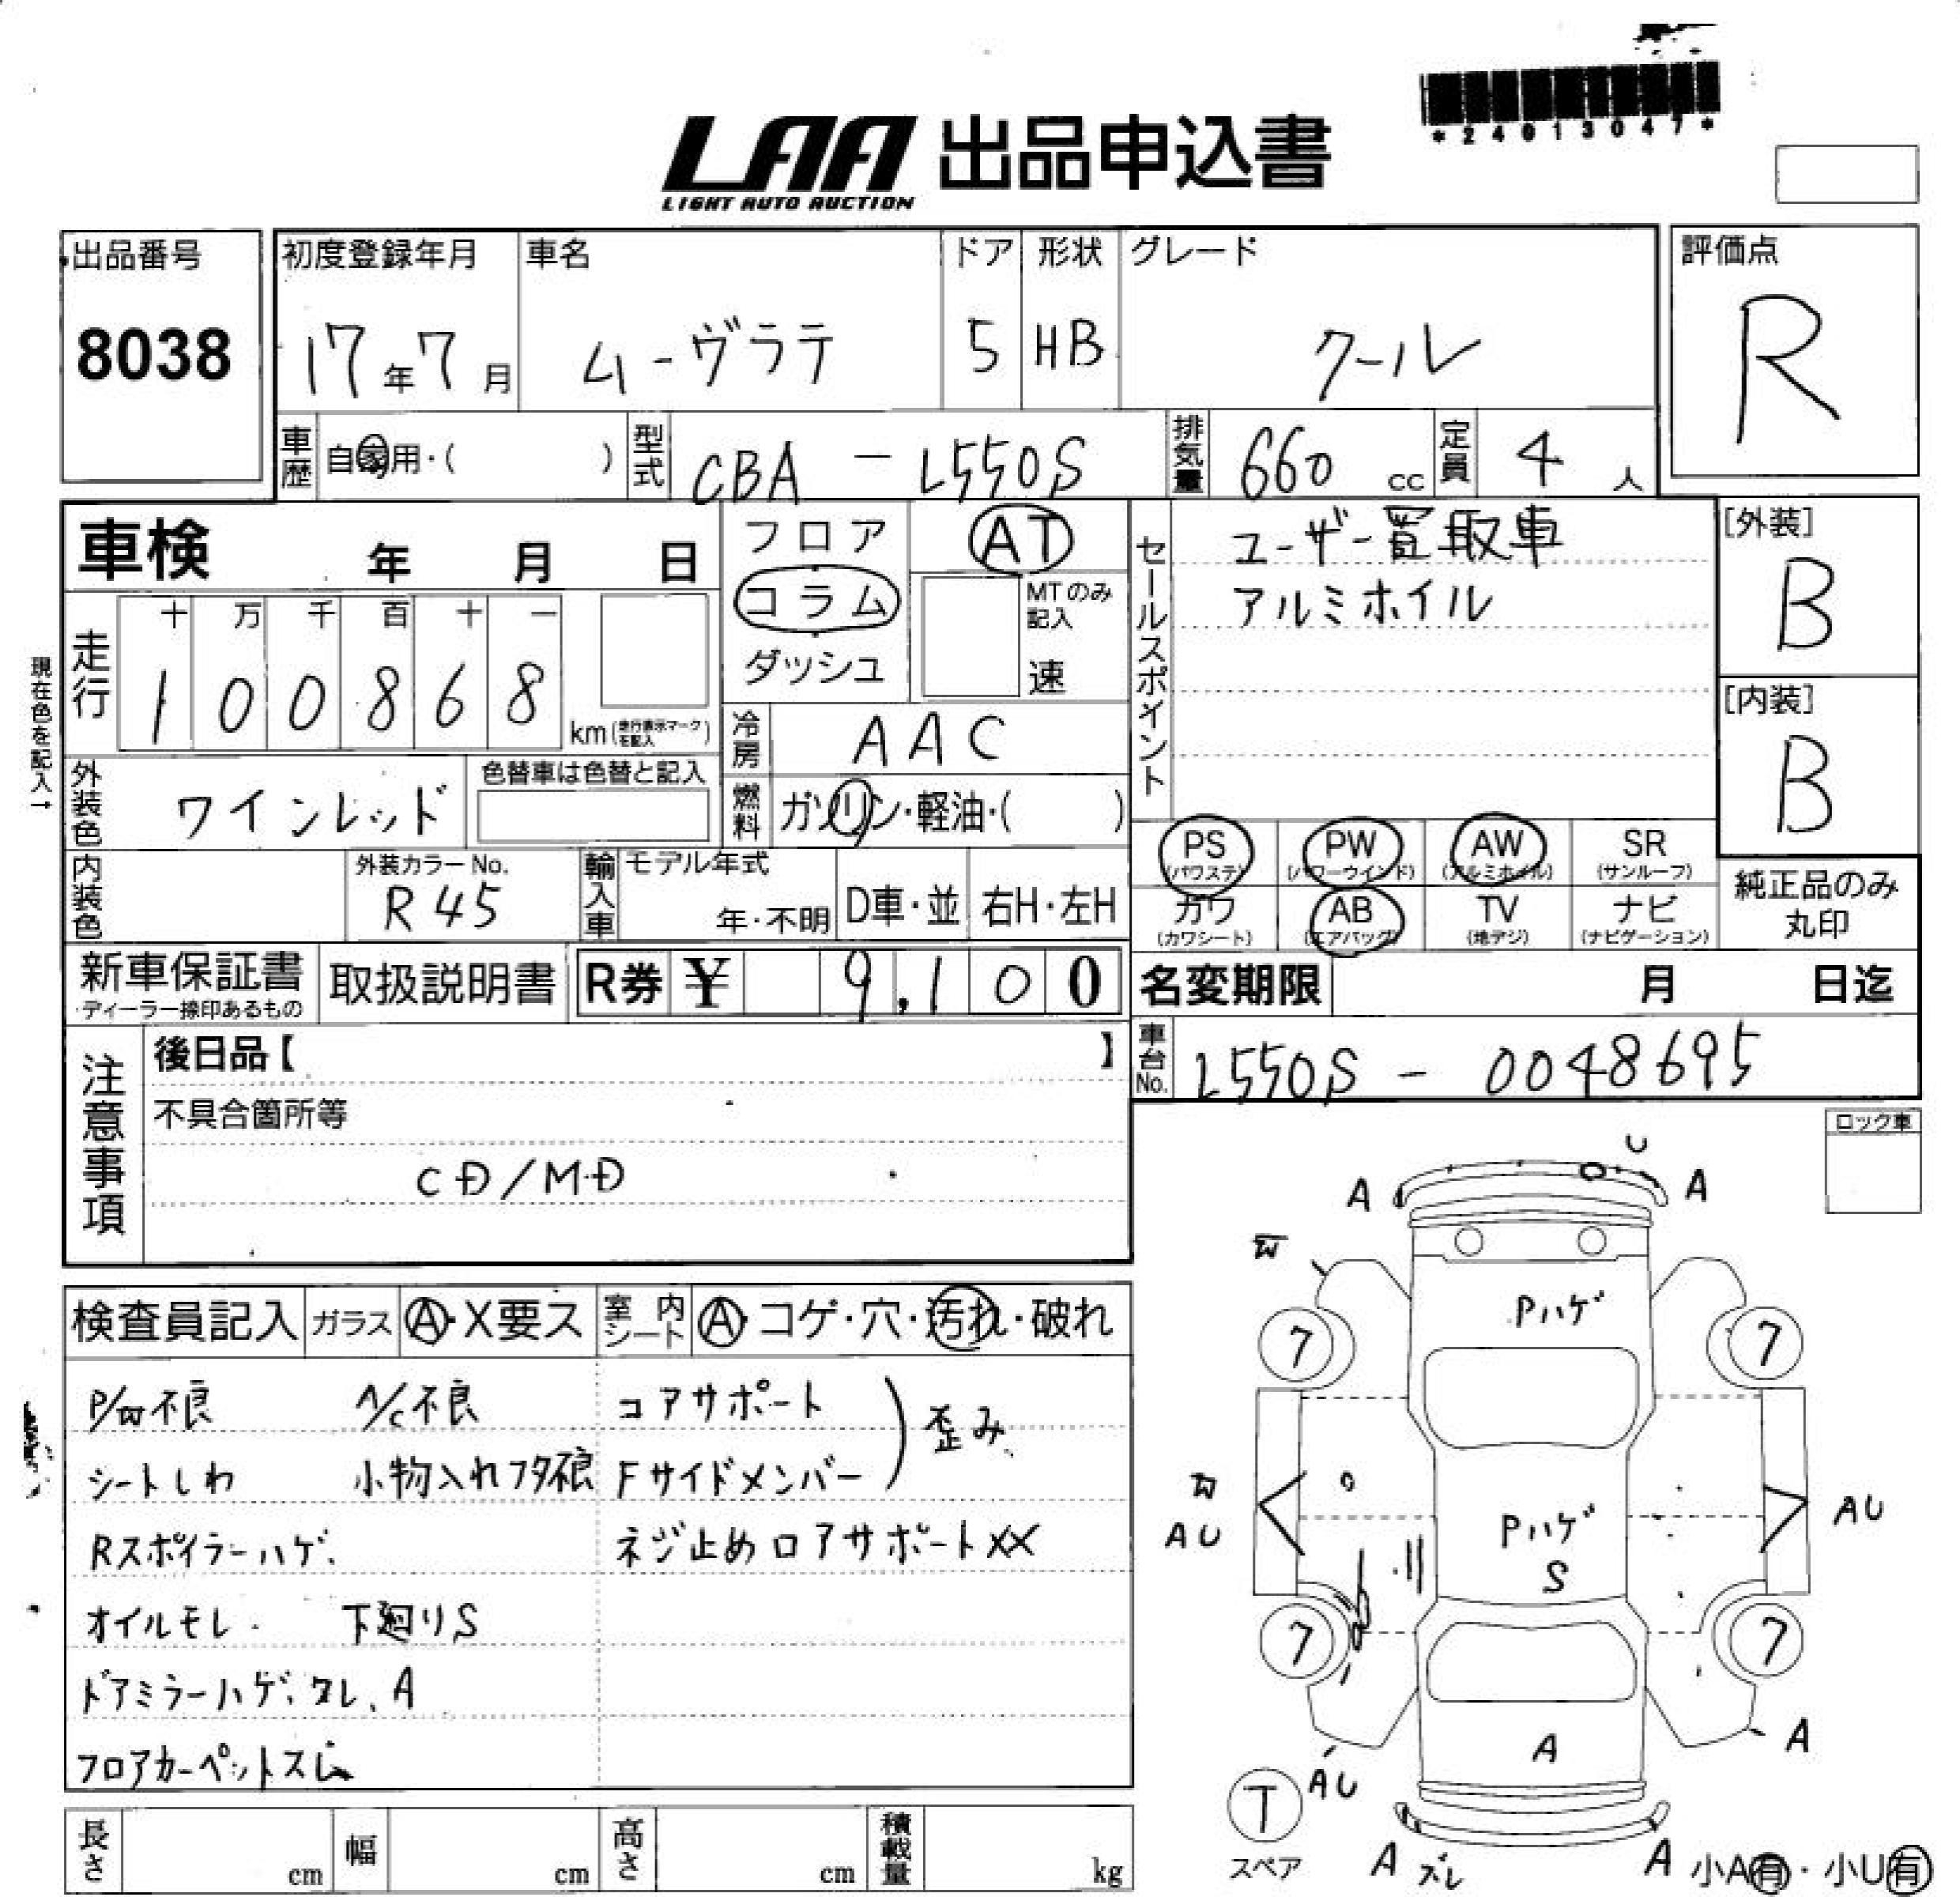 *24013047*
LAA 出品申込書
LIGHT AUTO AUCTION
出品番号 初度登録年月 車名 ドア 形状 グレード 評価点
8038 17年7月 ムーヴラテ 5 HB クール R
車歴 自家用・( ) 型式 CBA - L550S 排気量 660 cc 定員 4 人
車検 年 月 日 フロア AT ユーザー買取車 [外装]
コラム MTのみ記入 アルミホイル B
セールスポイント
十 万 千 百 十 一
現在色を記入→
走行 1 0 0 8 6 8 km(走行表示マークを記入) ダッシュ 速 [内装]
冷房 AAC B
外装色 ワインレッド 色替車は色替と記入 燃料 ガソリン・軽油・( )
PS AW PW SR
(パワステ) (パワーウインド) (アルミホイル) (サンルーフ)
内装色 外装カラーNo. R45 輸入車 モデル年式 年・不明 D車・並 右H・左H
カワ AB TV ナビ 純正品のみ丸印
(カワシート) (エアバッグ) (地デジ) (ナビゲーション)
新車保証書 取扱説明書 R券 ¥ 9,100 名変期限 月 日迄
ディーラー捺印あるもの
注意事項 後日品【 】 車台No. L550S - 0048695
不具合箇所等 ロック車
CD/MD
検査員記入 ガラス A・X要ス 室内シート A・コゲ・穴・汚れ・破れ
P/W不良 A/C不良 コアサポート 歪み
シートしわ 小物入れフタ不良 Fサイドメンバー
Rスポイラーハゲ ネジ止めロアサポートXX
オイルモレ 下廻りS
ドアミラーハゲ、ワレ、A
フロアカーペットスレ
長さ cm 幅 cm 高さ cm 積載量 kg
U
A A
W
Pハゲ
7 7
W
AU AU
Pハゲ
S
7 7
A
A
AU
T
スペア A ズレ A 小A有・小U有